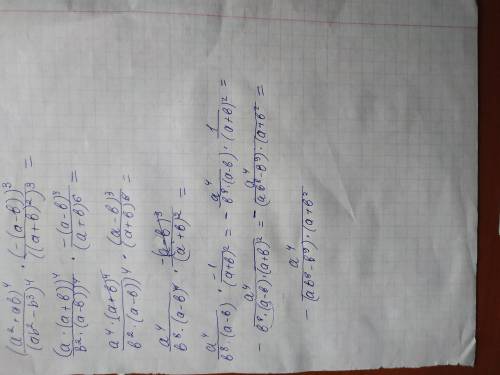 (a²+ab)⁴/(ab²-b³)⁴ · (-(a-b))³/((a+b)²)³ =
(a·(a+b))⁴/(b²·(a-b))⁴ · -(a-b)³/(a+b)⁶ =
a⁴·(a+b)⁴/(b²·(a-b))⁴ · (a-b)³/(a+b)⁶ =
a⁴/(b⁸·(a-b)⁴) · -(a-b)³/(a+b)² =
a⁴/(b⁸·(a-b)) · -1/(a+b)² = - a⁴/(b⁸·(a-b)) · 1/(a+b)² =
- a⁴/(b⁸·(a-b)·(a+b)²) = - a⁴/((ab⁸-b⁹)·(a+b²) =
- a⁴/((ab⁸-b⁹)·(a+b²)